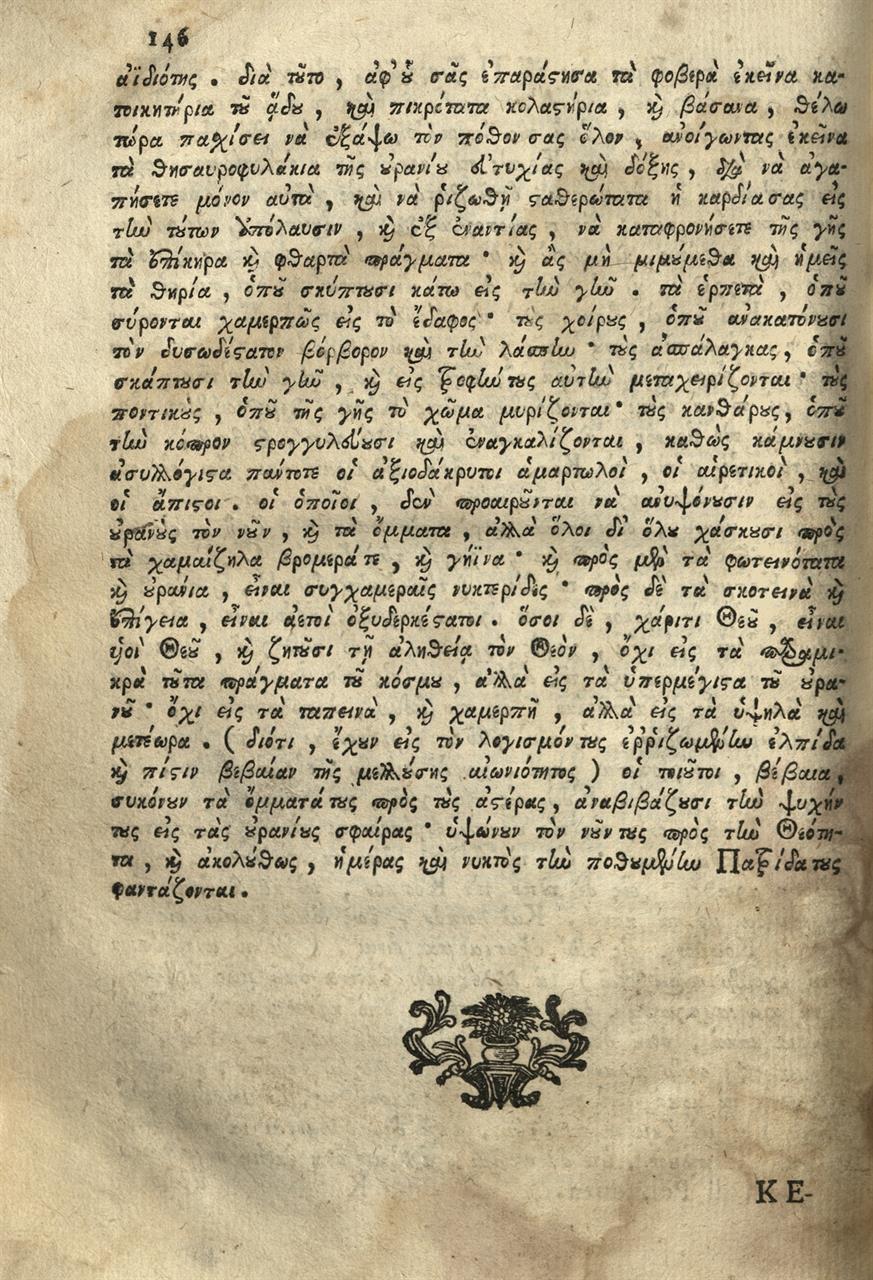 146
ἀϊδιότης. διὰ τοῦτο, ἀφ' οὗ σᾶς ἐπαράστησα τὰ φοβερὰ ἐκεῖνα κα-
τοικητήρια τοῦ ᾅδου, καὶ πικρότατα κολαστήρια, καὶ βάσανα, θέλω
τώρα πασχίσει νὰ ἐξάψω τὸν πόθον σας ὅλον, ἀνοίγωντας ἐκεῖνα
τὰ θησαυροφυλάκια τῆς οὐρανίου εὐτυχίας καὶ δόξης, διὰ νὰ ἀγα-
πήσετε μόνον αὐτὰ, καὶ νὰ ῥιζωθῇ σταθερώτατα ἡ καρδία σας εἰς
τὴν τούτων ὑπόλαυσιν, καὶ ἐξ ἐναντίας, νὰ καταφρονήσετε τῆς γῆς
τὰ ἐπίκηρα καὶ φθαρτὰ πράγματα· καὶ ἂς μὴ μιμούμεθα καὶ ἡμεῖς
τὰ θηρία, ὁποῦ σκύπτουσι κάτω εἰς τὴν γῆν. τὰ ἑρπετὰ, ὁποῦ
σύρονται χαμερπῶς εἰς τὸ ἔδαφος· τοὺς χοίρους, ὁποῦ ἀνακατόνουσι
τὸν δυσωδέστατον βόρβορον καὶ τὴν λάσπην· τοὺς ἀσπάλαγκας, ὁποῦ
σκάπτουσι τὴν γῆν, καὶ εἰς τροφήν τους αὐτὴν μεταχειρίζονται· τοὺς
ποντικοὺς, ὁποῦ τῆς γῆς τὸ χῶμα μυρίζονται· τοὺς κανθάρους, ὁποῦ
τὴν κόπρον στρογγυλεύουσι καὶ ἐναγκαλίζονται, καθὼς κάμνουσιν
ἀσυλλόγιστα πάντοτε οἱ ἀξιοδάκρυτοι ἁμαρτωλοὶ, οἱ αἱρετικοὶ, καὶ
οἱ ἄπιστοι. οἱ ὁποῖοι, δὲν προαιροῦνται νὰ ἀνυψόνουσιν εἰς τοὺς
οὐρανοὺς τὸν νοῦν, καὶ τὰ ὄμματα, ἀλλὰ ὅλοι δι' ὅλου χάσκουσι πρὸς
τὰ χαμαίζηλα βρομερά τε, καὶ γήϊνα· καὶ πρὸς μὲν τὰ φωτεινότατα
καὶ οὐράνια, εἶναι συγχαμεραῖς νυκτερίδες· πρὸς δὲ τὰ σκοτεινὰ καὶ
ἐπίγεια, εἶναι ἀετοὶ ὀξυδερκέστατοι. ὅσοι δὲ, χάριτι Θεοῦ, εἶναι
υἱοὶ Θεοῦ, καὶ ζητοῦσι τῇ ἀληθείᾳ τὸν Θεὸν, ὄχι εἰς τὰ παραμι-
κρὰ τοῦτα πράγματα τοῦ κόσμου, ἀλλὰ εἰς τὰ ὑπερμέγιστα τοῦ οὐρα-
νοῦ· ὄχι εἰς τὰ ταπεινὰ, καὶ χαμερπῆ, ἀλλὰ εἰς τὰ ὑψηλὰ καὶ
μετέωρα. (διότι, ἔχουν εἰς τὸν λογισμόν τους ἐῤῥιζωμένην ἐλπίδα
καὶ πίστιν βεβαίαν τῆς μελλούσης αἰωνιότητος) οἱ τοιοῦτοι, βέβαια,
συκόνουν τὰ ὄμματά τους πρὸς τοὺς ἀστέρας, ἀναβιβάζουσι τὴν ψυχήν
τους εἰς τὰς οὐρανίους σφαίρας· ὑψώνουν τὸν νοῦν τους πρὸς τὴν Θεότη-
τα, καὶ ἀκολούθως, ἡμέρας καὶ νυκτὸς τὴν ποθουμένην Πατρίδα τους
φαντάζονται.
ΚΕ-